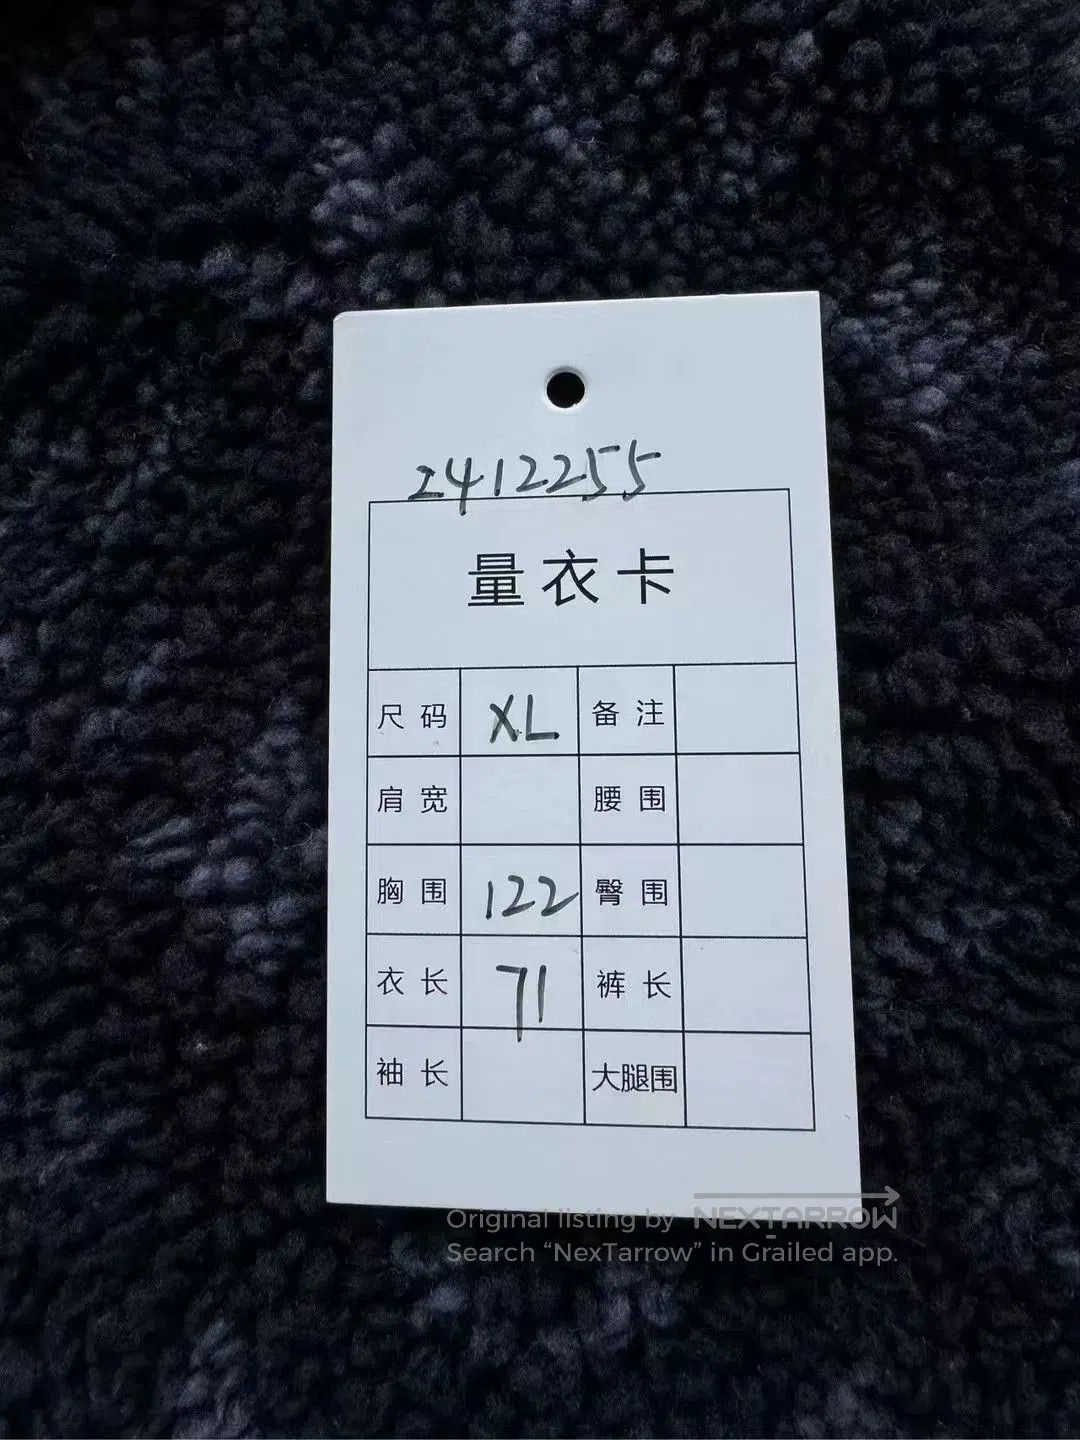 2412255
量衣卡
尺码 XL 备注
肩宽 腰围
胸围 122 臀围
衣长 71 裤长
袖长 大腿围
Original listing by NEXTARROW
Search “NexTarrow” in Grailed app.